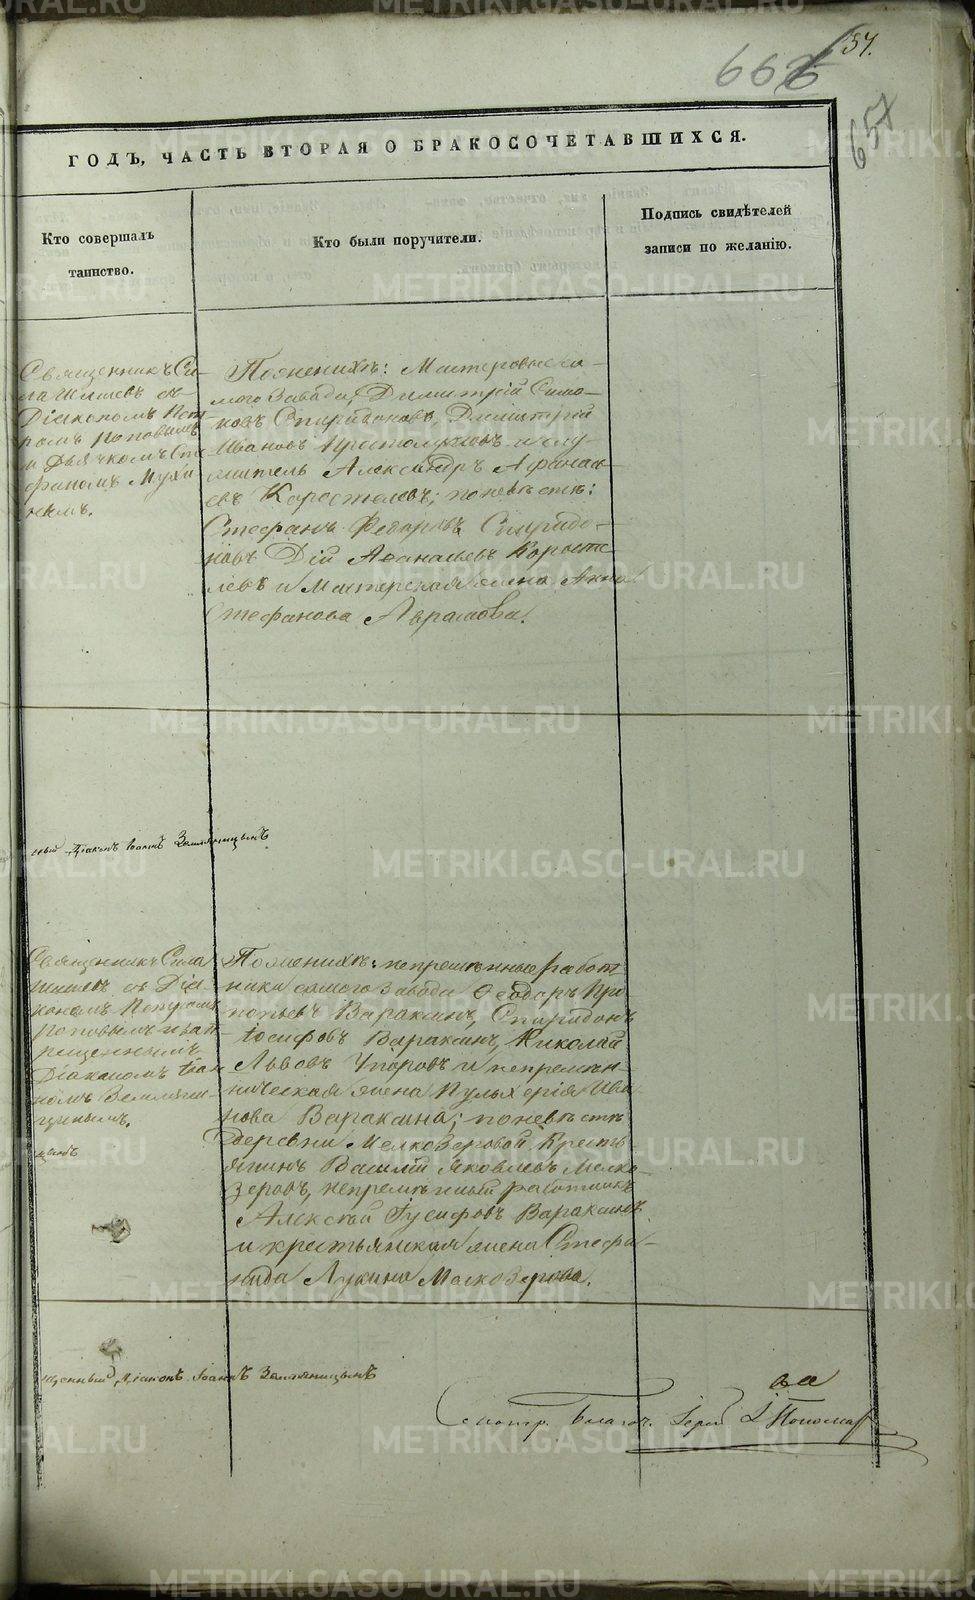 57.
666
657
ГОДЪ, ЧАСТЬ ВТОРАЯ О БРАКОСОЧЕТАВШИХСЯ.
Кто совершалъ
таинство.
Кто были поручители.
Подпись свидѣтелей
записи по желанію.
Священникъ Си-
ла съ
Діакономъ Пет
ромъ Поповымъ
и Дьячкомъ Сте
фаномъ Мухи
нымъ.
По женихѣ: Мастеровые са-
маго Завода, Димитрій Симо-
новъ Спиридоновъ, Димитрій
Ивановъ и слу-
житель Александръ Афанась-
евъ Коростелевъ; по невѣстѣ:
Стефанъ Федоровъ Спиридо-
новъ Дій Афанасьевъ Коросте
левъ и Мастерская жена Анна
Стефанова Аврамова.
Діаконъ Іоаннъ Земляницынъ
Священникъ Сила
съ Діа-
кономъ Петромъ
Поповымъ
Діакономъ Іоан
номъ Земляни-
цынымъ.
По женихѣ: непремѣнные работ
ники самого завода Ѳеодоръ Про
копьевъ Варакинъ, Спиридонъ
Іосифовъ Варакинъ, Николай
Львовъ и непремѣн-
ническая жена Пульхерія Ива
нова Варакина; по невѣстѣ
деревни Мелкозеровой Кресть
янинъ Василій Яковлевъ Мелко-
зеровъ, непремѣнный работникъ
Алексѣй Іусифовъ Варакинъ
и крестьянская жена Стефа-
нида Лукина Мелкозерова.
Діаконъ Іоаннъ Земляницынъ
Смотр. Благоч. Іерей
METRIKI.GASO-URAL.RU